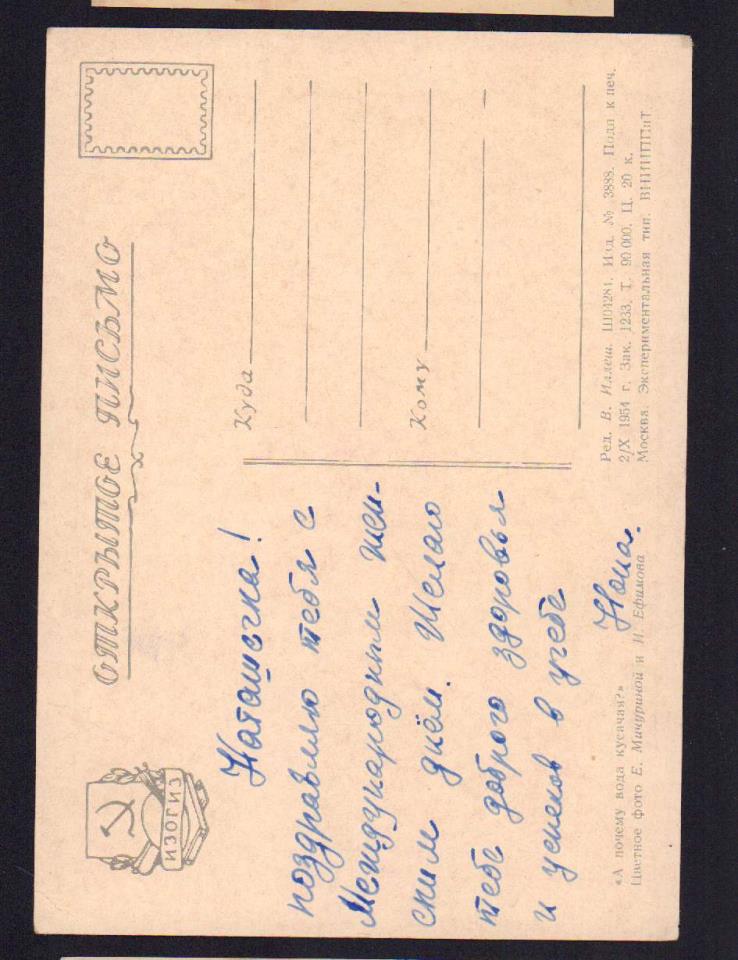 ОТКРЫТОЕ ПИСЬМО
ИЗОГИЗ
Наташечка!
поздравляю тебя с
Международным жен-
ским днём. Желаю
тебе доброго здоровья
и успехов в учебе
Нона.
Куда
Кому
«А почему вода кусачая?»
Цветное фото Е. Мичуриной и И. Ефимова
Ред. В. Иллеш. Ш04281. Изд. № 3888. Подп к печ.
2/X 1954 г. Зак. 1233. Т. 90 000. Ц. 20 к.
Москва. Экспериментальная тип. ВНИИППиТ